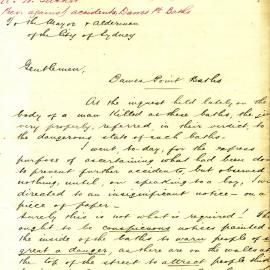 Prev. against accidents Dawes Pt Baths
To the Mayor & Aldermen
of the City of Sydney
Gentlemen,
Dawes Point Baths
At the inquest held lately on the
body of a man killed at these baths, the jury
very properly, referred, in their verdict, to
the dangerous state of such baths.
I went to-day, for the express
purpose of ascertaining what had been done
to prevent further accidents, but observed
nothing, until, on speaking to a boy, I was
directed to an insignificant notice — on a
piece of paper —
Surely this is not what is required! There
ought to be conspicuous notices painted on
the inside of the baths to warn people of so
great a danger, as there are on the walls at
the top of the street to attract people th